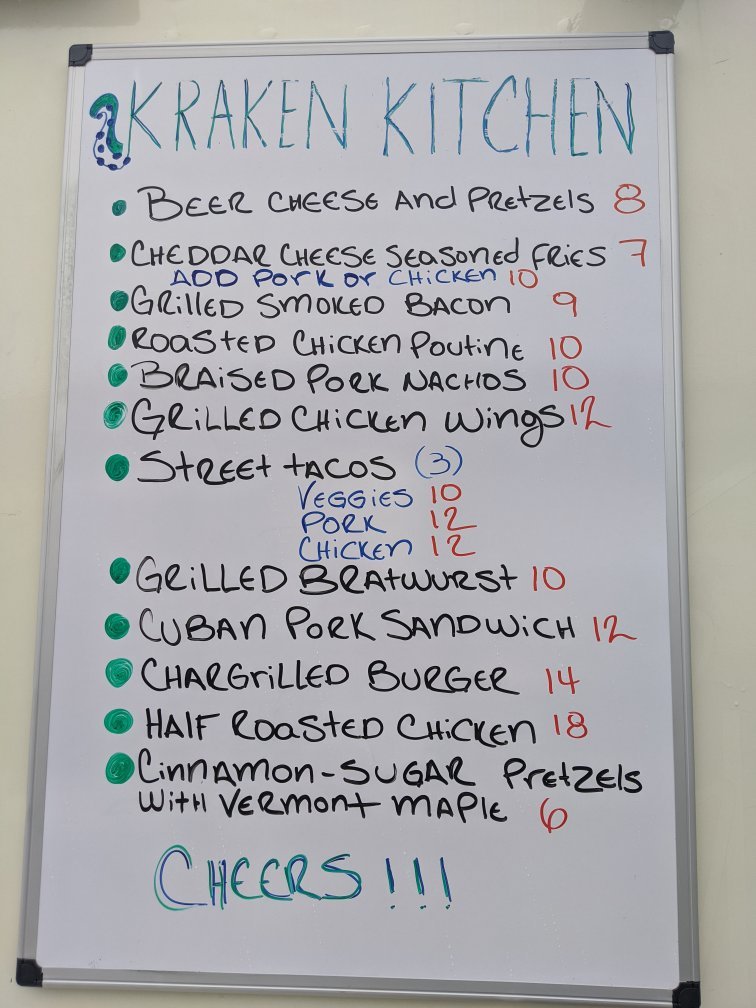 KRAKEN KITCHEN
BEER CHEESE AND PRETZELS 8
CHEDDAR CHEESE SEASONED FRIES 7
ADD PORK OR CHICKEN 10
GRILLED SMOKED BACON 9
ROASTED CHICKEN POUTINE 10
BRAISED PORK NACHOS 10
GRILLED CHICKEN WINGS 12
STREET TACOS (3)
VEGGIES 10
PORK 12
CHICKEN 12
GRILLED BRATWURST 10
CUBAN PORK SANDWICH 12
CHARGRILLED BURGER 14
HALF ROASTED CHICKEN 18
CINNAMON-SUGAR PRETZELS
WITH VERMONT MAPLE 6
CHEERS!!!